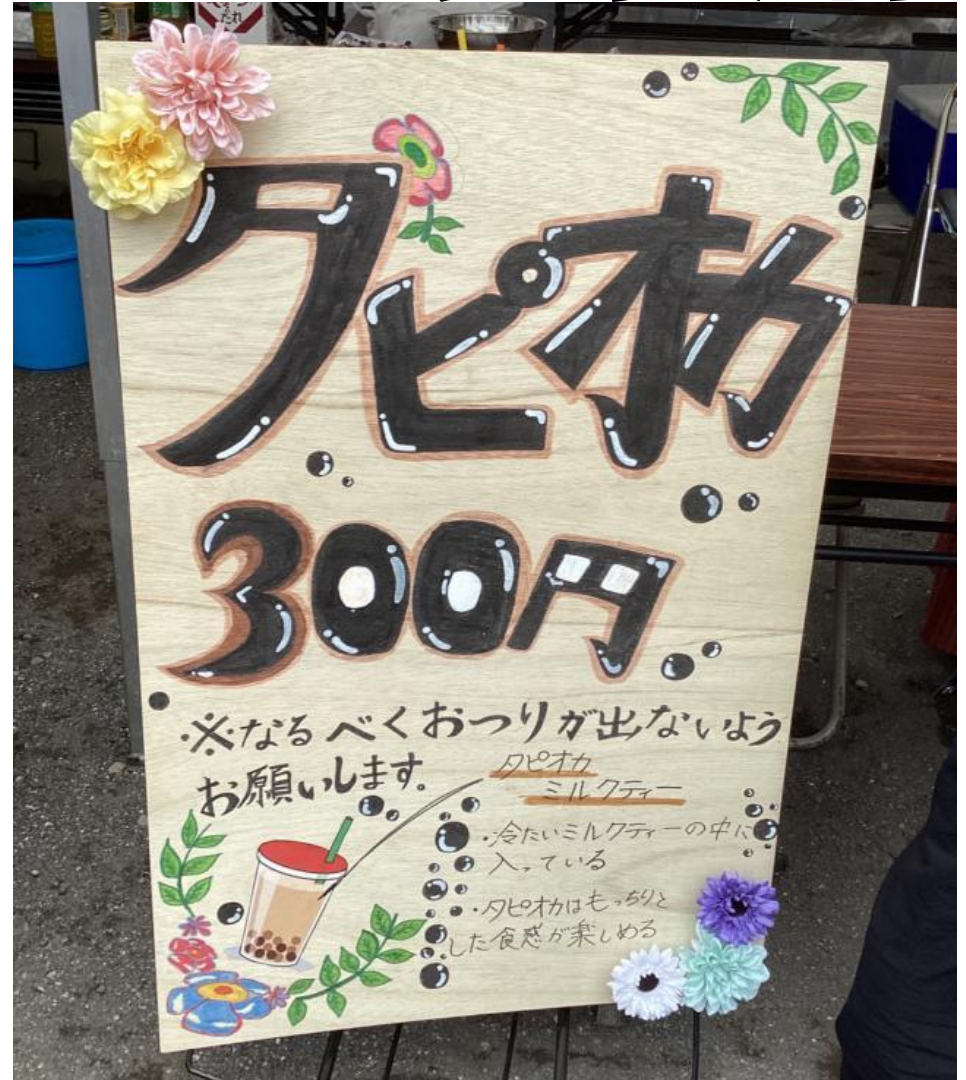 タピオカ
300円
※なるべくおつりが出ないよう
お願いします。
タピオカ
ミルクティー
・冷たいミルクティーの中に
入っている
・タピオカはもっちりと
した食感が楽しめる